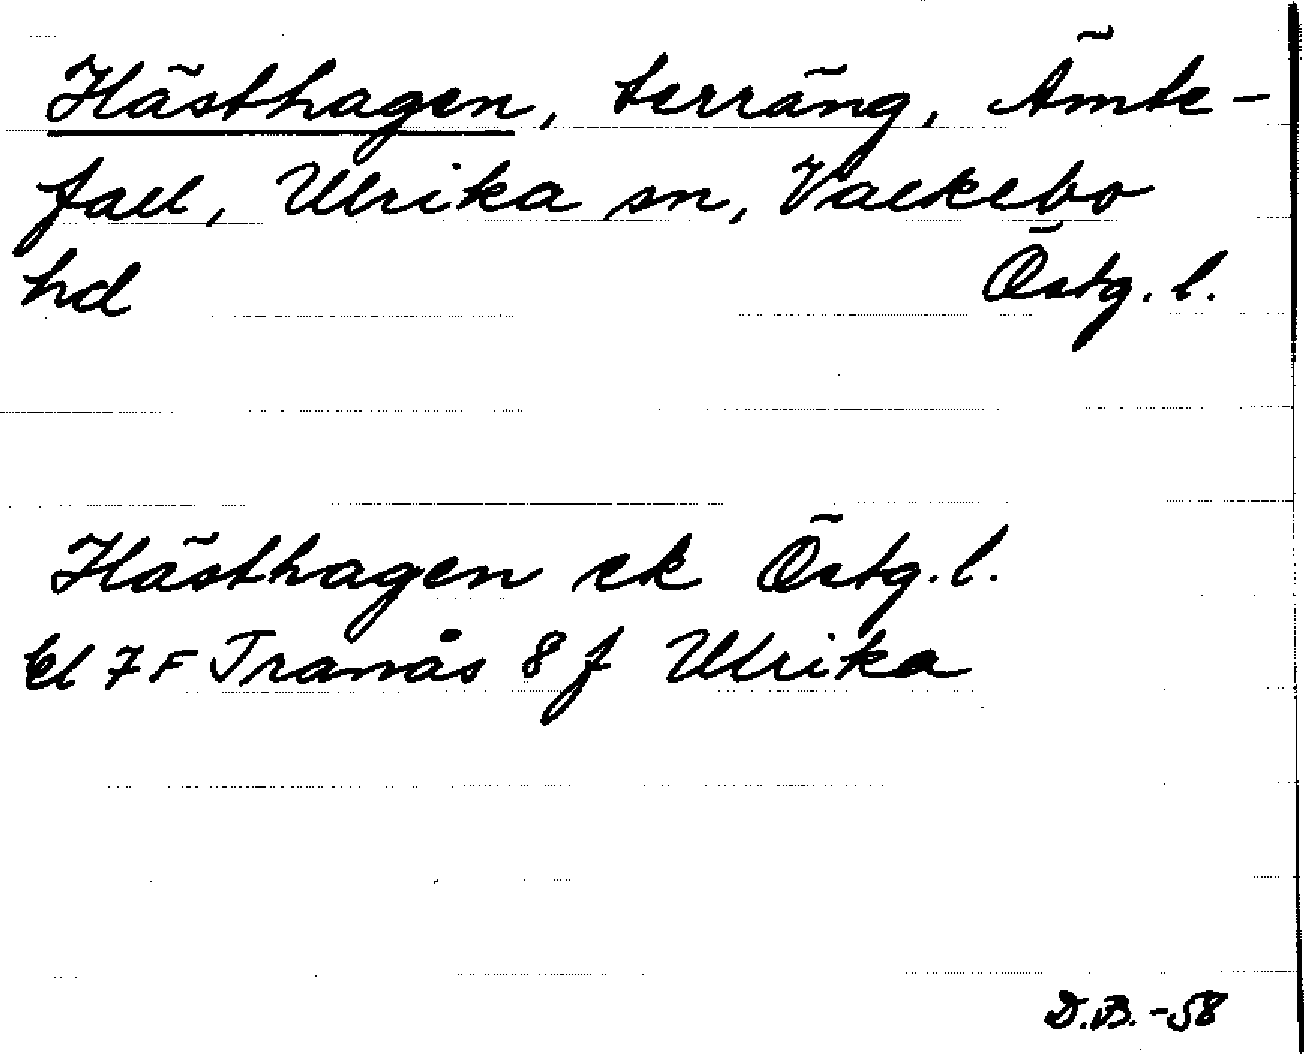 Hästhagen, terräng, Ämte-
fall, Ulrika sn, Valkebo
hd Östg. l.
Hästhagen ek Östg. l.
bl 7F Tranås 8f Ulrika
D.B. -58